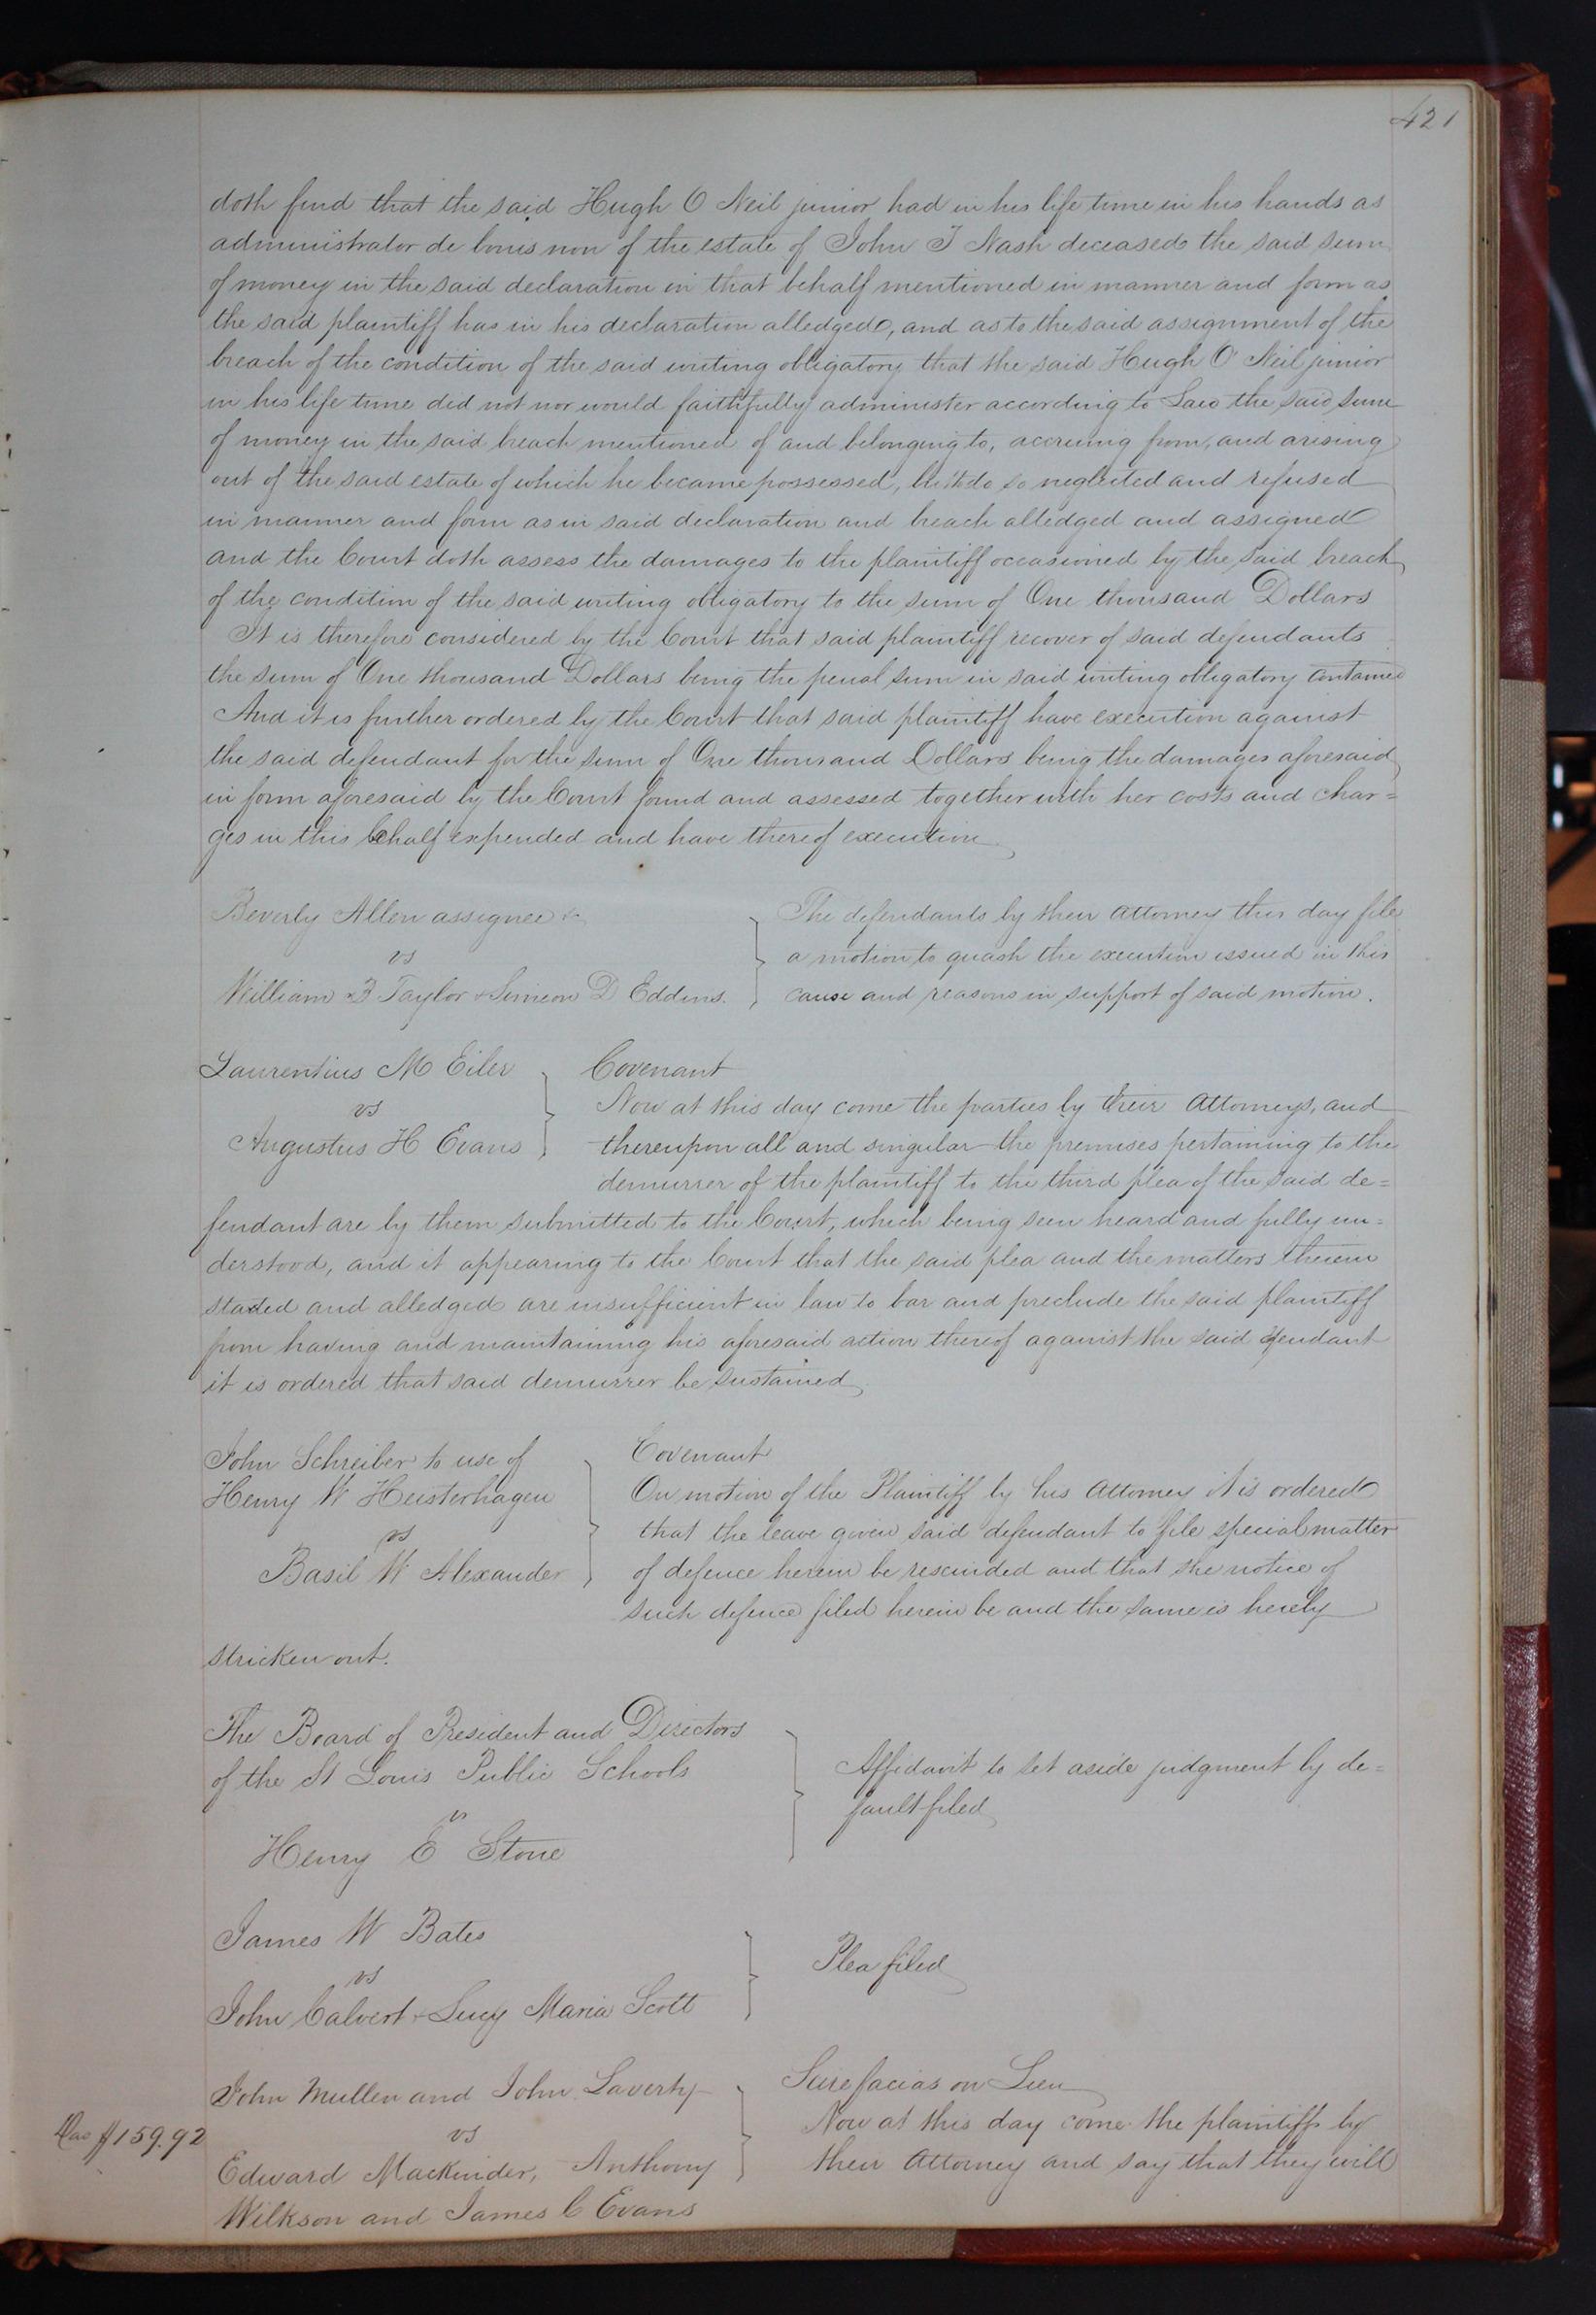 421
doth find that the said Hugh O Neil junior had in his life time in his hands as
administrator de bonis non of the estate of John J Nash deceased the said sum
of money in the said declaration in that behalf mentioned in manner and form as
the said plaintiff has in his declaration alledged, and as to the said assignment of the
breach of the condition of the said writing obligatory that the said Hugh O Neil junior
in his life time did not nor would faithfully administer according to Law the said sum
of money in the said breach mentioned of and belonging to, accruing from, and arising
out of the said estate of which he became possessed, but to do so neglected and refused
in manner and form as in said declaration and breach alledged and assigned
and the Court doth assess the damages to the plaintiff occasioned by the said breach
of the condition of the said writing obligatory to the sum of One thousand Dollars
It is therefore considered by the Court that said plaintiff recover of said defendants
the sum of One thousand Dollars being the penal sum in said writing obligatory contained
And it is further ordered by the Court that said plaintiff have execution against
the said defendant for the sum of One thousand Dollars being the damages aforesaid
in form aforesaid by the Court found and assessed together with her costs and char=
ges in this behalf expended and have thereof execution
Beverly Allen assignee &c
vs
William B Taylor & Simeon D Eddins.
The defendants by their Attorney this day file
a motion to quash the execution issued in this
cause and reasons in support of said motion.
Laurentius M Eiler
vs
Augustus H Evans
Covenant
Now at this day come the parties by their Attorneys, and
thereupon all and singular the premises pertaining to the
demurrer of the plaintiff to the third plea of the said de=
fendant are by them submitted to the Court, which being seen heard and fully un=
derstood, and it appearing to the Court that the said plea and the matters therein
stated and alledged are insufficient in law to bar and preclude the said plaintiff
from having and maintaining his aforesaid action thereof against the said defendant
it is ordered that said demurrer be sustained
John Schreiber to use of
Henry W Heisterhagen
vs
Basil W Alexander
Covenant
On motion of the Plaintiff by his Attorney it is ordered
that the leave given said defendant to file special matter
of defence herein be rescinded and that the notice of
such defence filed herein be and the same is hereby
stricken out.
The Board of President and Directors
of the St Louis Public Schools
vs
Henry E Stone
Affidavit to set aside judgment by de=
fault filed
James W Bates
vs
John Calvert & Lucy Maria Scott
Plea filed
John Mullen and John Laverty
vs
Edward Mackinder, Anthony
Wilkson and James C Evans
Das $159.92
Scire facias on Lien
Now at this day come the plaintiffs by
their Attorney and say that they will